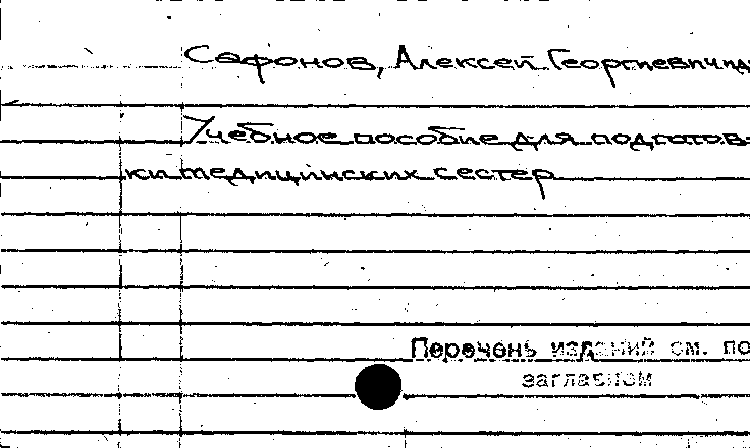 Сафонов, Алексей Георгиевич
Учебное пособие для подготов-
ки медицинских сестер
Перечень изданий см. по
заглавном